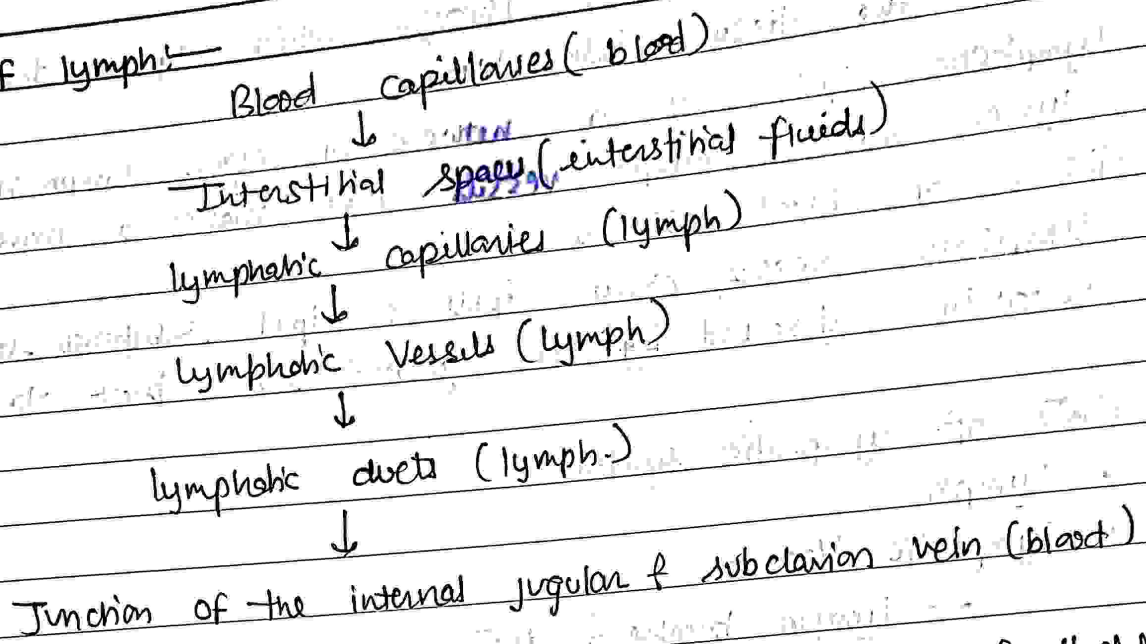 f lymph:—
Blood capillaries (blood)
↓
Interstitial spaces (interstitial fluids)
↓
lymphatic capillaries (lymph)
↓
lymphatic vessels (lymph)
↓
lymphatic ducts (lymph.)
↓
Junction of the internal jugular & subclavian vein (blood)